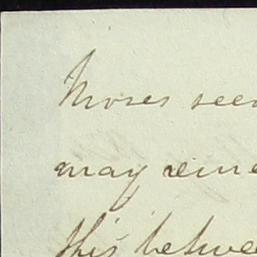 Moses seem
may reme
this betwee